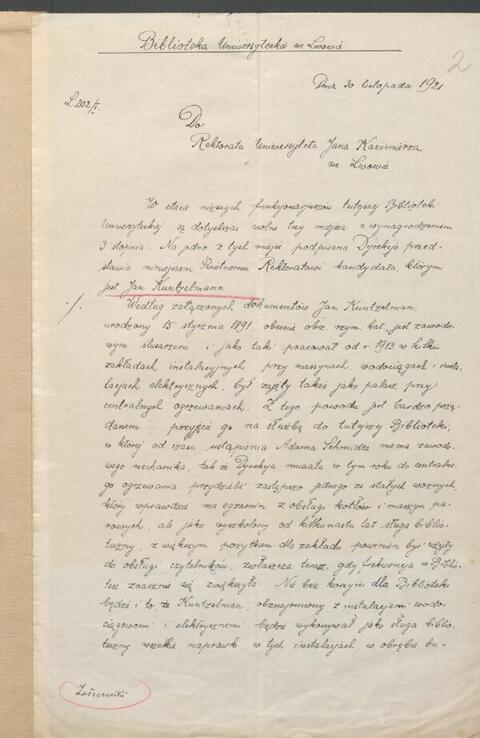 Biblioteka Uniwersytecka we Lwowie.
2
Dnia 30 listopada 1921
L. 202/I.
Do
Rektoratu Uniwersytetu Jana Kazimierza
we Lwowie.
W etacie niższych funkcjonarjuszów tutejszej Biblioteki
Uniwersyteckiej są dotychczas wolne trzy miejsca z wynagrodzeniem
3 stopnia. Na jedno z tych miejsc podpisana Dyrekcja przed-
stawia niniejszem Świetnemu Rektoratowi kandydata, którym
jest Jan Kuntzelmann
Według załączonych dokumentów Jan Kuntzelman,
urodzony 15 stycznia 1891, obecnie obrz. rzym. kat., jest zawodo-
wym ślusarzem i jako taki pracował od r. 1913 w kilku
zakładach instalacyjnych przy maszynach, wodociągach i insta-
lacjach elektrycznych, był użyty także jako palacz przy
centralnych ogrzewaniach. Z tego powodu jest bardzo pożą-
danem przyjęcie go na służbę do tutejszej Biblioteki,
w której od czasu ustąpienia Adama Schmidta niema zawodo-
wego mechanika, tak że Dyrekcja musiała w tym roku do centralne-
go ogrzewania przydzielić zastępczo jednego ze stałych woźnych,
który wprawdzie ma egzamin z obsługi kotłów i maszyn pa-
rowych, ale jako wyszkolony od kilkunastu lat sługa biblio-
teczny, z większym pożytkiem dla zakładu powinien być użyty
do obsługi czytelników, zwłaszcza teraz, gdy frekwencja w Biblio-
tece znacznie się zwiększyła. Nie bez korzyści dla Biblioteki
będzie i to, że Kuntzelman, obznajomiony z instalacjami wodo-
ciągowemi i elektrycznemi będzie wykonywał jako sługa biblio-
teczny wszelkie naprawki w tych instalacjach, w obrębie bu-